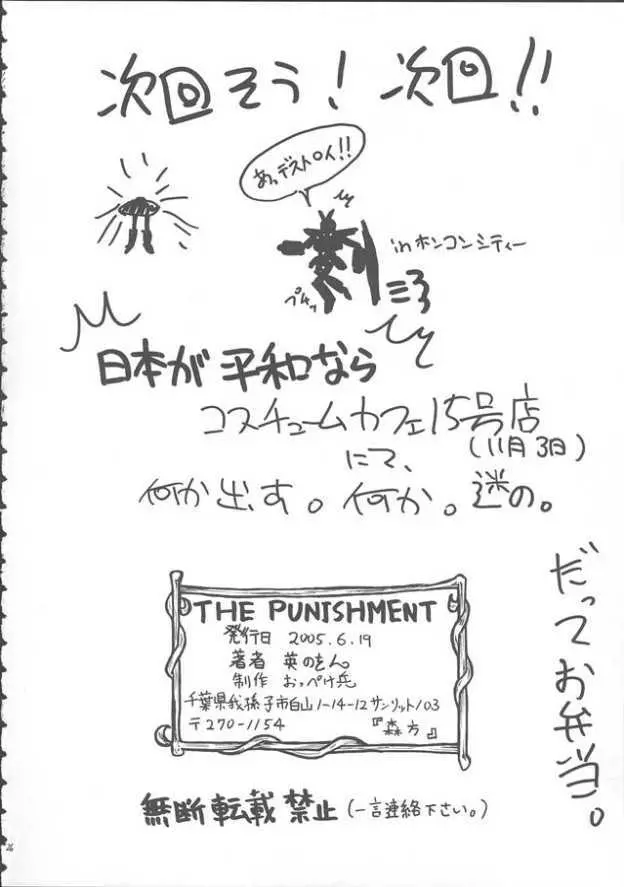 次回そう! 次回!!
あっデストロイ!!
inホンコンシティー
プチッ
日本が平和なら
コスチュームカフェ15号店
(11月3日)
にて、
何か出す。何か。謎の。
だってお弁当。
THE PUNISHMENT
発行日 2005.6.19
著者 英のをん
制作 おっぺけ兵
千葉県我孫子市白山1-14-12サンリット103
〒270-1154 『森方』
無断転載禁止(一言連絡下さい。)